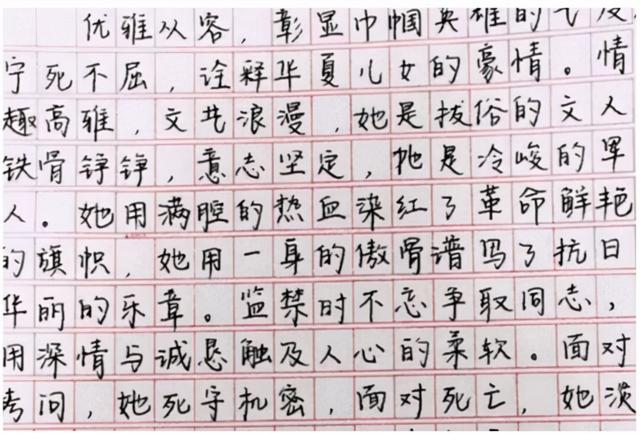 优雅从容，彰显巾帼英雄的气度
宁死不屈，诠释华夏儿女的豪情。情
趣高雅，文艺浪漫，她是拔俗的文人
铁骨铮铮，意志坚定，她是冷峻的军
人。她用满腔的热血染红了革命鲜艳
的旗帜，她用一身的傲骨谱写了抗日
华丽的乐章。监禁时不忘争取同志，
用深情与诚恳触及人心的柔软。面对
拷问，她死守机密，面对死亡，她淡